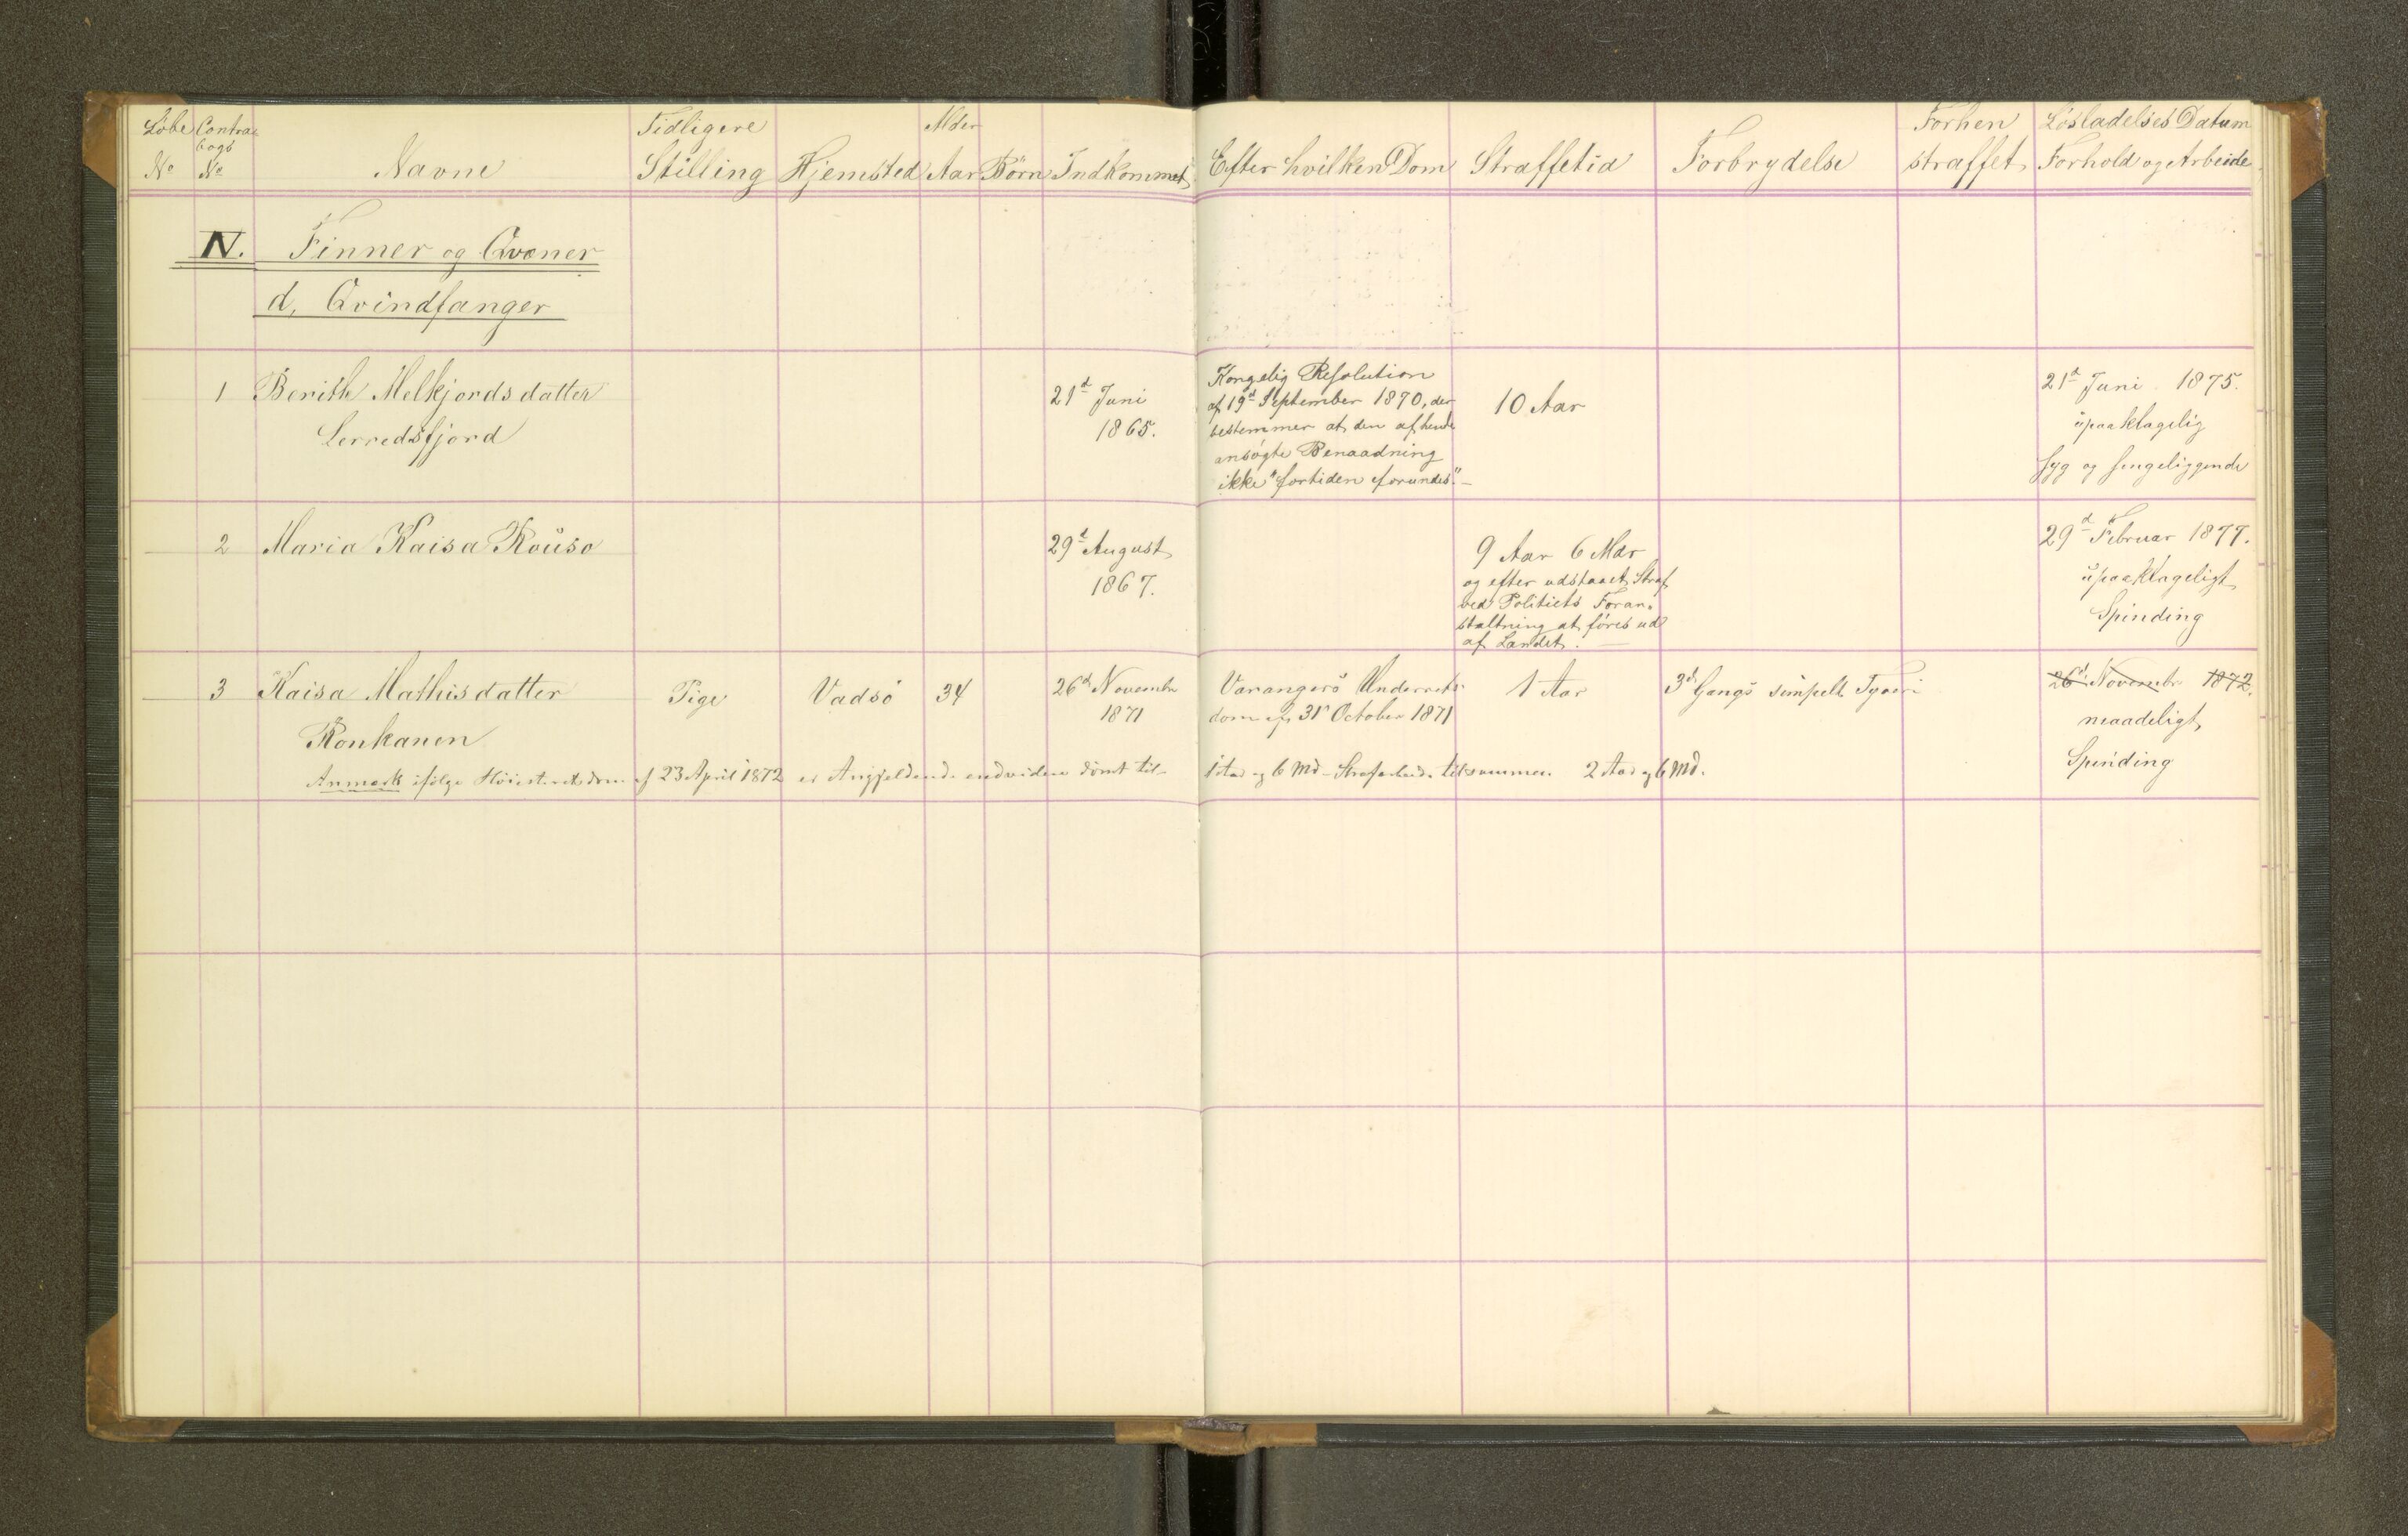 Löbe No
Contra bogs No
Navne
Tidligere Stilling
Hjemsted
Alder Aar
Börn
Indkommet
Efter hvilken Dom
Straffetid
Forbrydelse
Forhen straffet
Lösladelses Datum
Forhold og Arbeide
N. Finner og Qvæner
d, Qvindfanger
1 Berith Melkjordsdatter
Lerredsfjord
21d Juni
1865.
Kongelig Resolution
af 19d September 1870, der
bestemmer at den af hende
ansögte Benaadning
ikke "fortiden forundes".
10 Aar
21d Juni 1875.
upaaklagelig
syg og sengeliggende
2 Maria Kaisa Rouso
29d August
1867.
9 Aar 6 Mdr
og efter udstaaet Straf
ved Politiets Foran-
staltning at föres ud
af Landet.
29d Februar 1877.
upaaklageligt
Spinding
3 Kaisa Mathisdatter
Ronkanen
Pige
Vadsö
34
26d Novembr
1871
Varangers Underrets
dom af 31' October 1871
1 Aar
3d Gangs simpelt Tyveri
26d Novembr 1872.
Spinding
Anmærk ifölge Höiesteretsdom af 23 April 1872 er Angjeldende endvidere dömt til 1 Aar og 6 Md. Strafarbeide tilsammen 2 Aar og 6 Md.